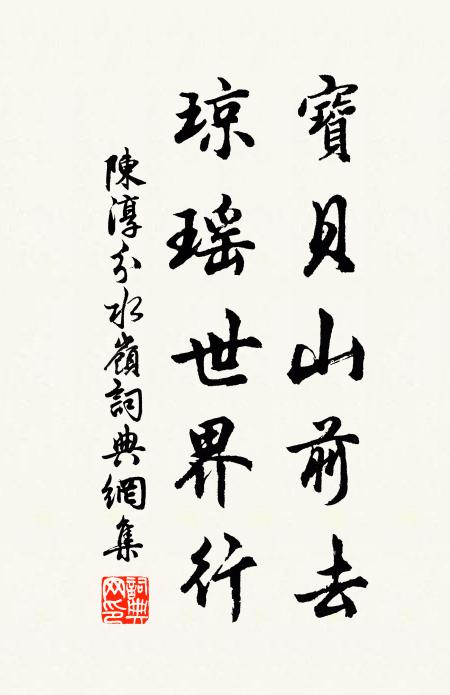 寶貝山前去
琼瑶世界行
陳淳分水嶺詞典網集
詞典
网印